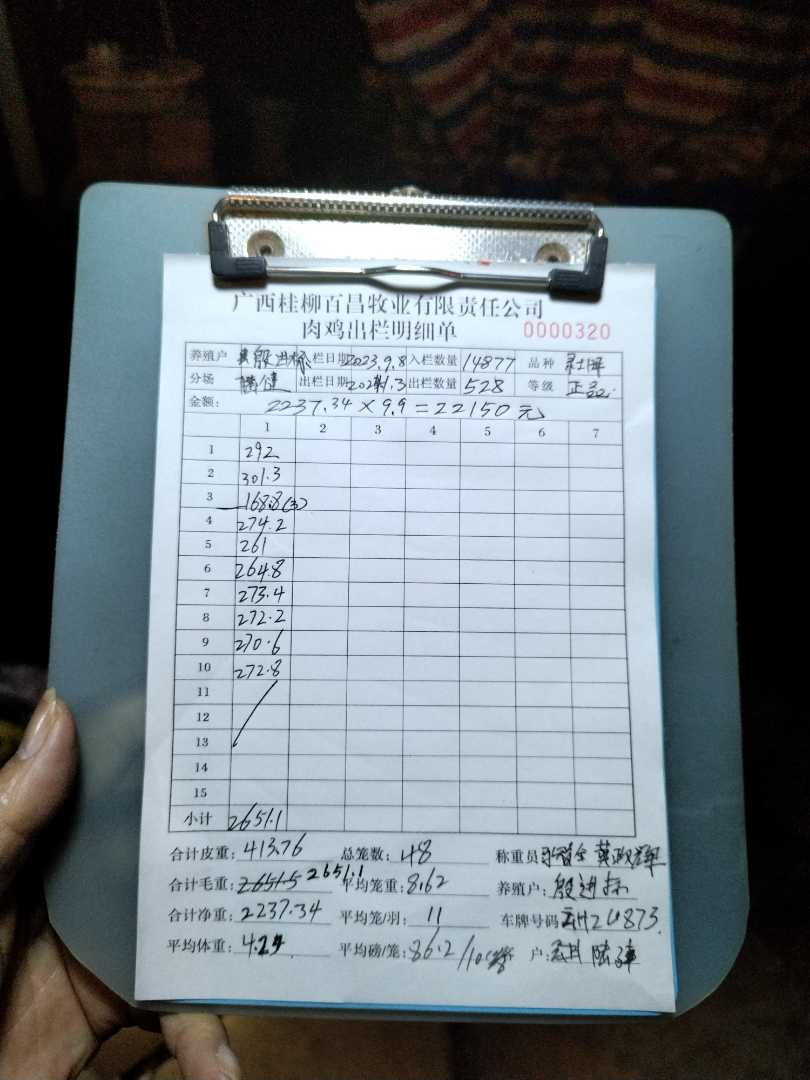 广西桂柳百昌牧业有限责任公司
肉鸡出栏明细单 0000320
养殖户 殷进标 入栏日期 2023.9.8 入栏数量 14877 品种
分场 出栏日期 出栏数量 528 等级 正品
金额: 2237.34 × 9.9 = 22150元
1 2 3 4 5 6 7
1 292
2 301.3
3 168.8(3)
4 274.2
5 261
6 264.8
7 273.4
8 272.2
9 270.6
10 272.8
11
12
13
14
15
小计 2651.1
合计皮重: 413.76 总笼数: 48 称重员
合计毛重: 2651.5 2651.1 平均笼重: 8.62 养殖户: 殷进标
合计净重: 2237.34 平均笼/羽: 11 车牌号码
平均体重: 4.24 平均磅/笼: 86.2/10 户: